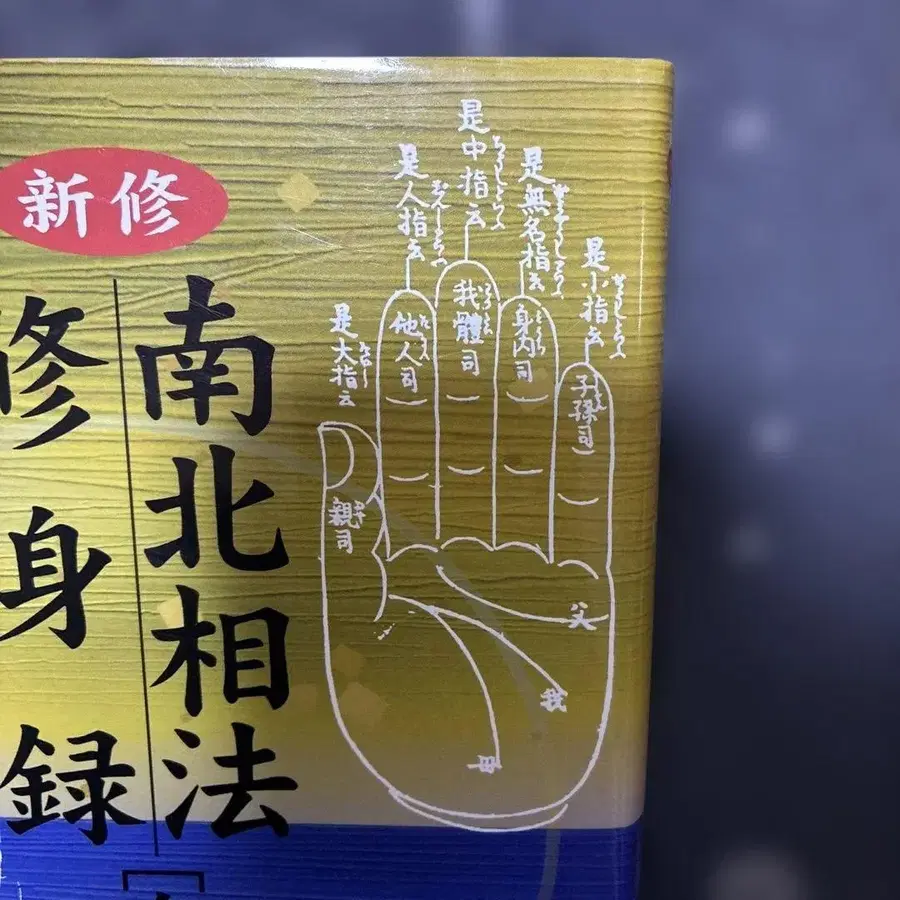 新修
南北相法
修身録
是中指云
是人指云
是無名指云
是小指云
是大指云
我體司
他人司
身内司
子孫司
親司
父
我
母